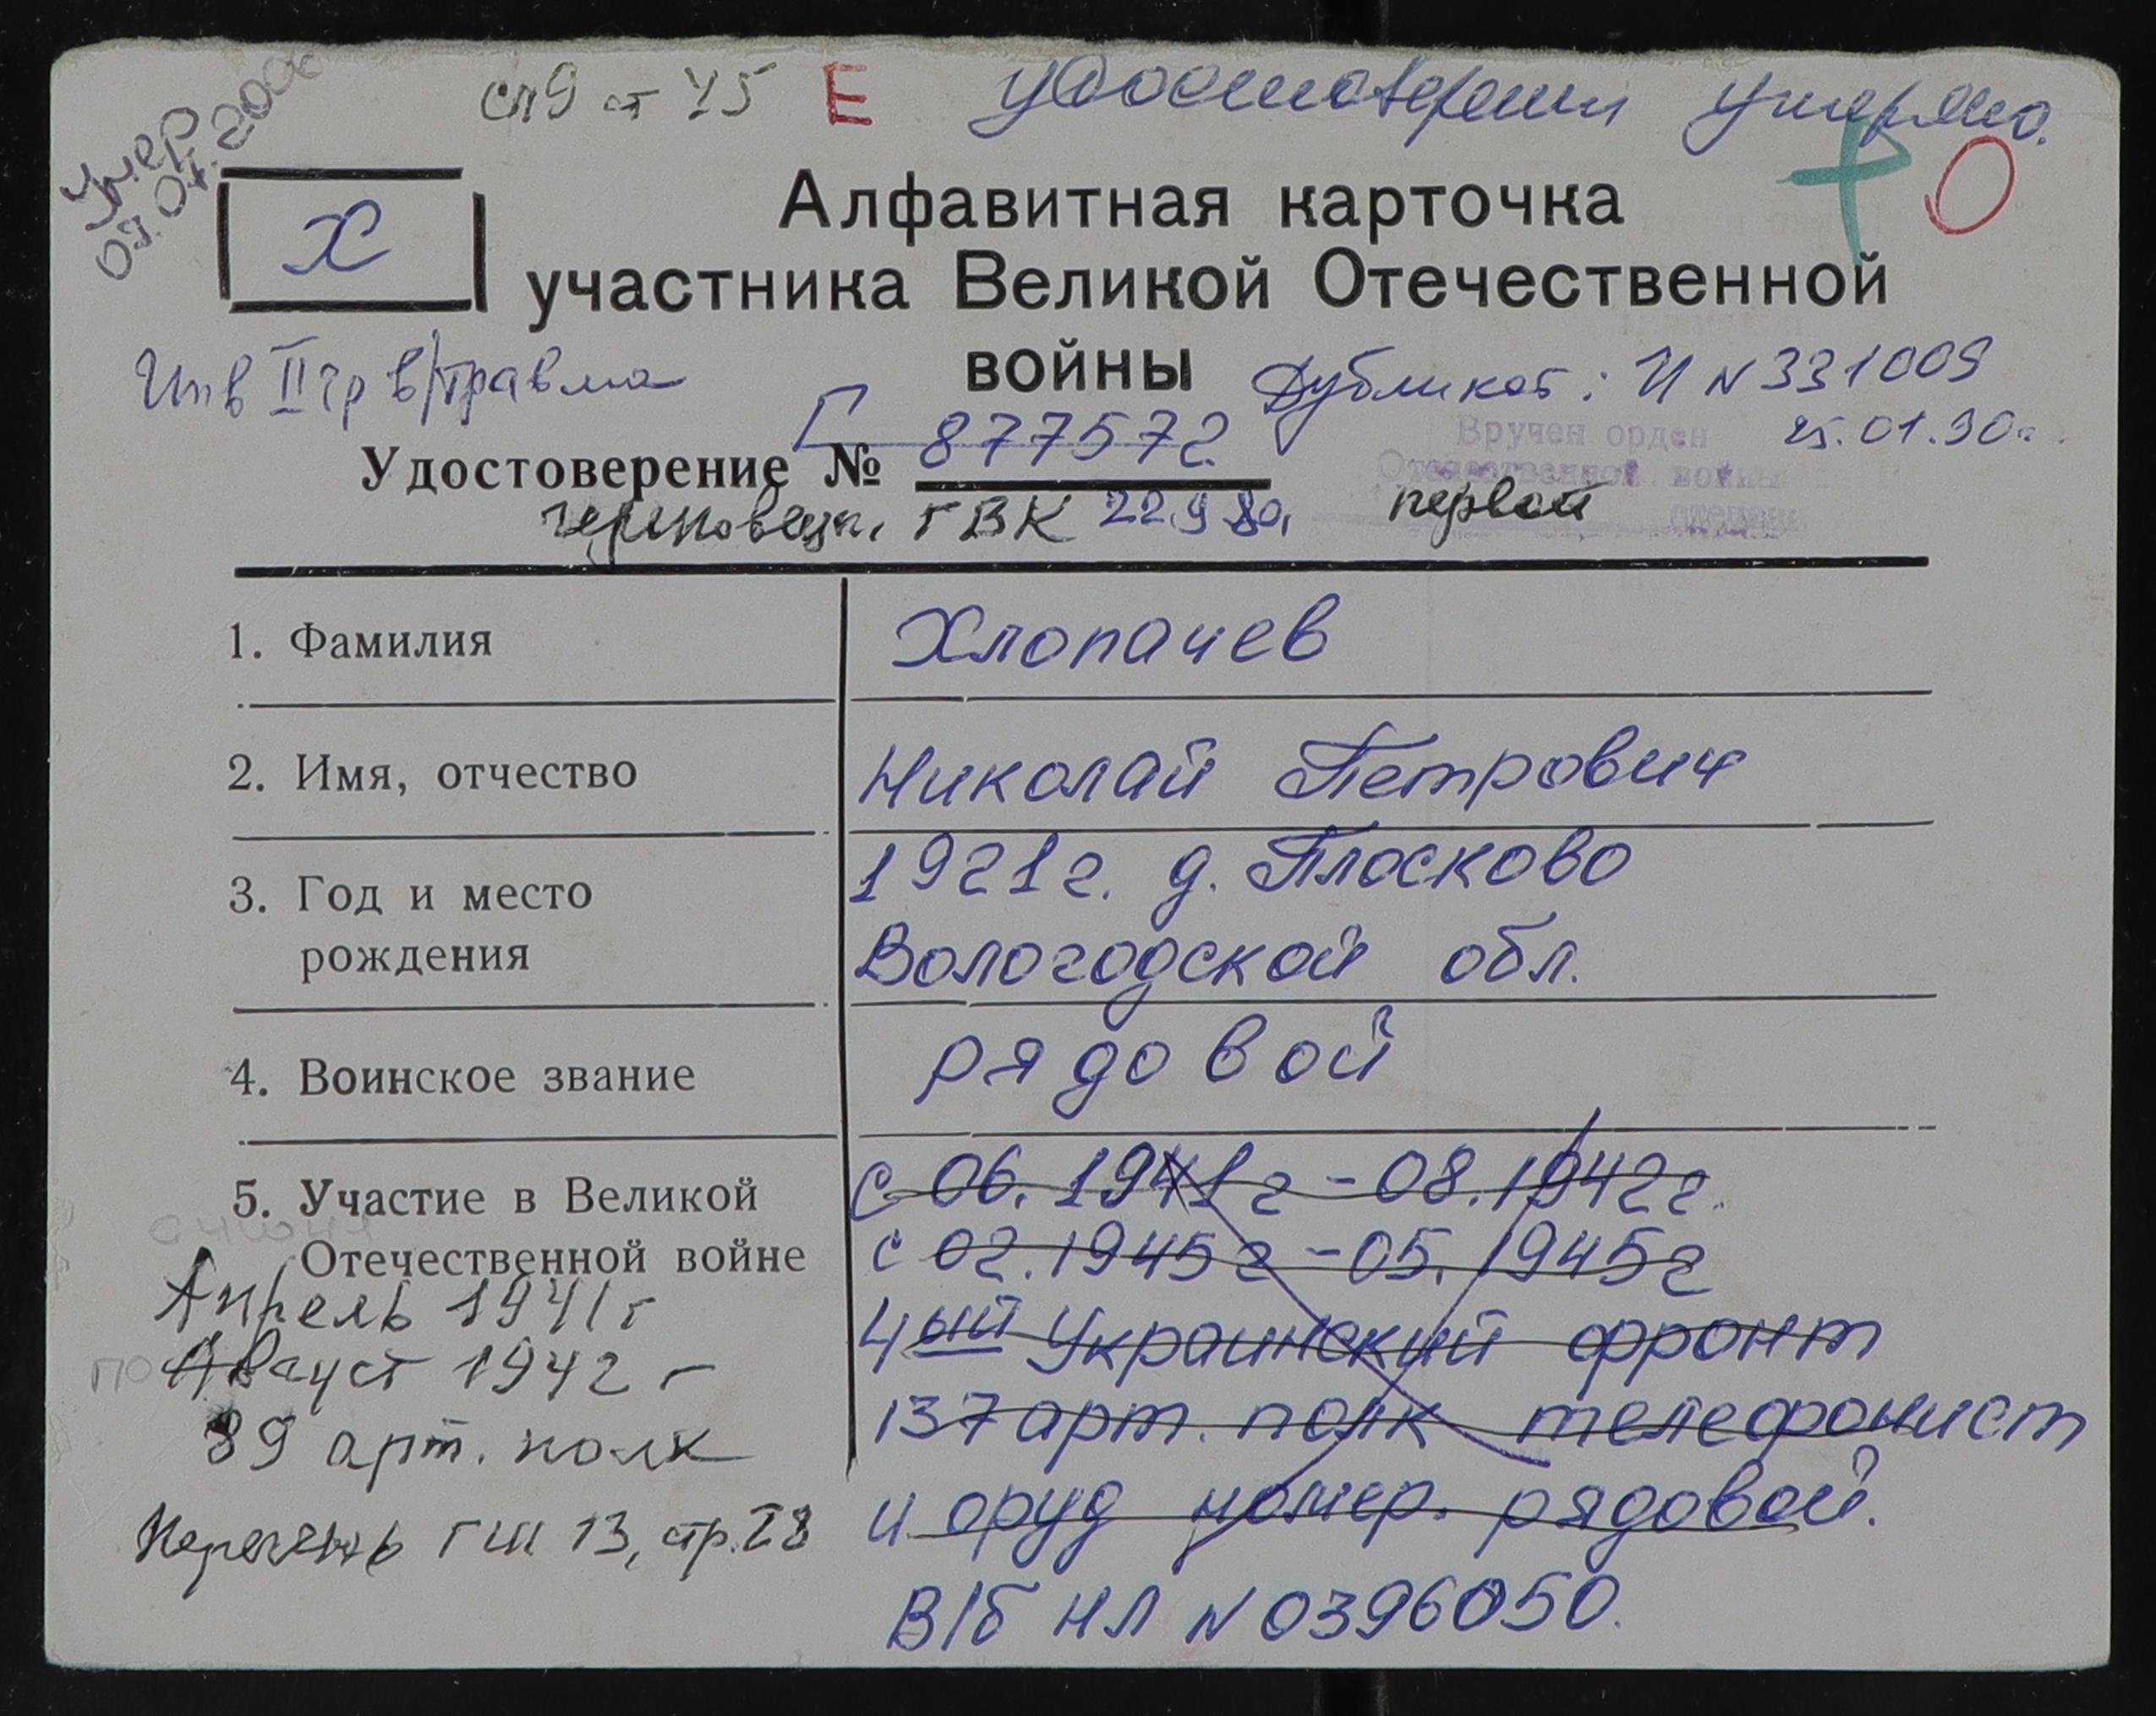 Умер
09.04.2000
сп9 ст 45 Е удостоверени утеряно.
Х
О
Алфавитная карточка
участника Великой Отечественной
войны
Инв II гр в/травма
Дубликат: И N 331009
25.01.90г.
Удостоверение № Г 877572
Вручен орден
Отечественной войны
первой степени
череповецк. ГВК 22.9 80,
1. Фамилия Хлопачев
2. Имя, отчество Николай Петрович
3. Год и место рождения 1921г. д. Плосково
Вологодской обл.
4. Воинское звание рядовой
5. Участие в Великой
Отечественной войне
с 06.1941г - 08.1942г.
с 02.1945г - 05.1945г
4ый Украинский фронт
137 арт. полк телефонист
и оруд номер. рядовой.
В/б НЛ N 0396050.
Апрель 1941 г
по Август 1942 г
89 арт. полк
Перечень ГШ 13, стр. 28